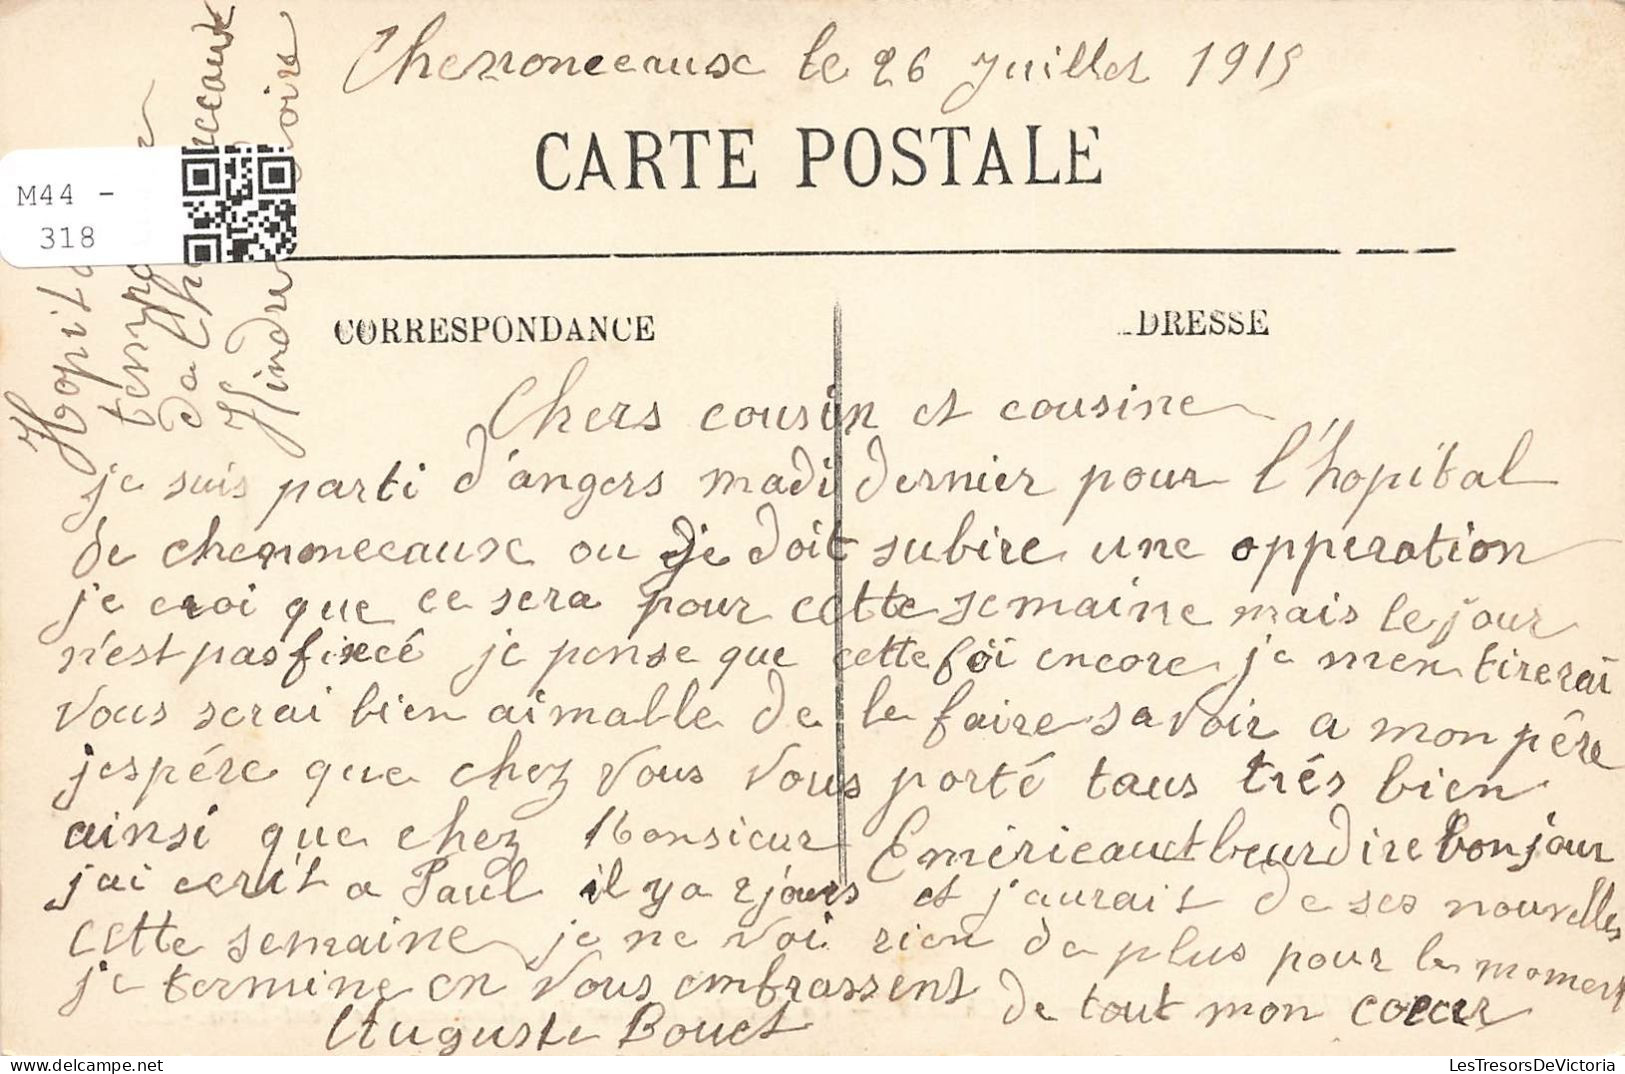 Chenonceaux le 26 Juillet 1915
CARTE POSTALE
M44 -
318
Hopital
da
Hindre Loire
CORRESPONDANCE
DRESSE
Chers cousin et cousine
je suis parti d'angers madi dernier pour l'hopital
de chenonceaux ou je doit subire une opperation
je croi que ce sera pour cette semaine mais le jour
n'est pas fixcé je pense que cette foi encore je men tirerai
vous serai bien aimable de le faire savoir a mon pére
jespére que chez vous vous porté tous trés bien
ainsi que chez Monsieur Emericauct leur dire bonjour
j'ai cerit a Paul il y a 2 jours et j'aurait de ses nouvelles
cette semaine je ne voi rien de plus pour le moment
je termine en vous embrassent de tout mon coeur
Auguste Bouet
LesTresorsDeVictoria